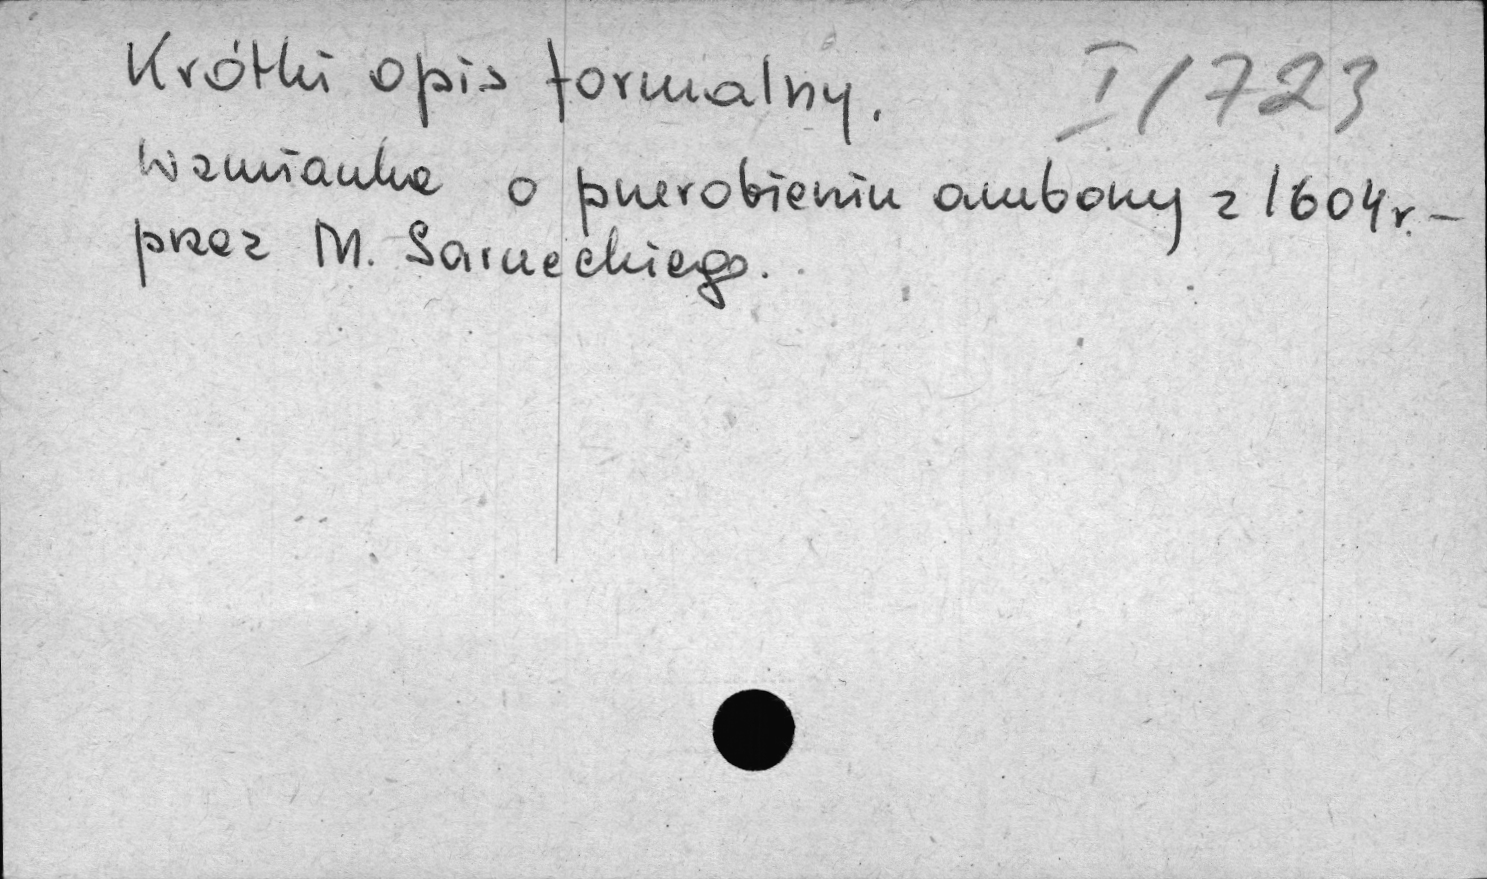 Krótki opis formalny. I/723
Wzmianka o przerobieniu ambony z 1604 r. –
przez M. Sarneckiego.